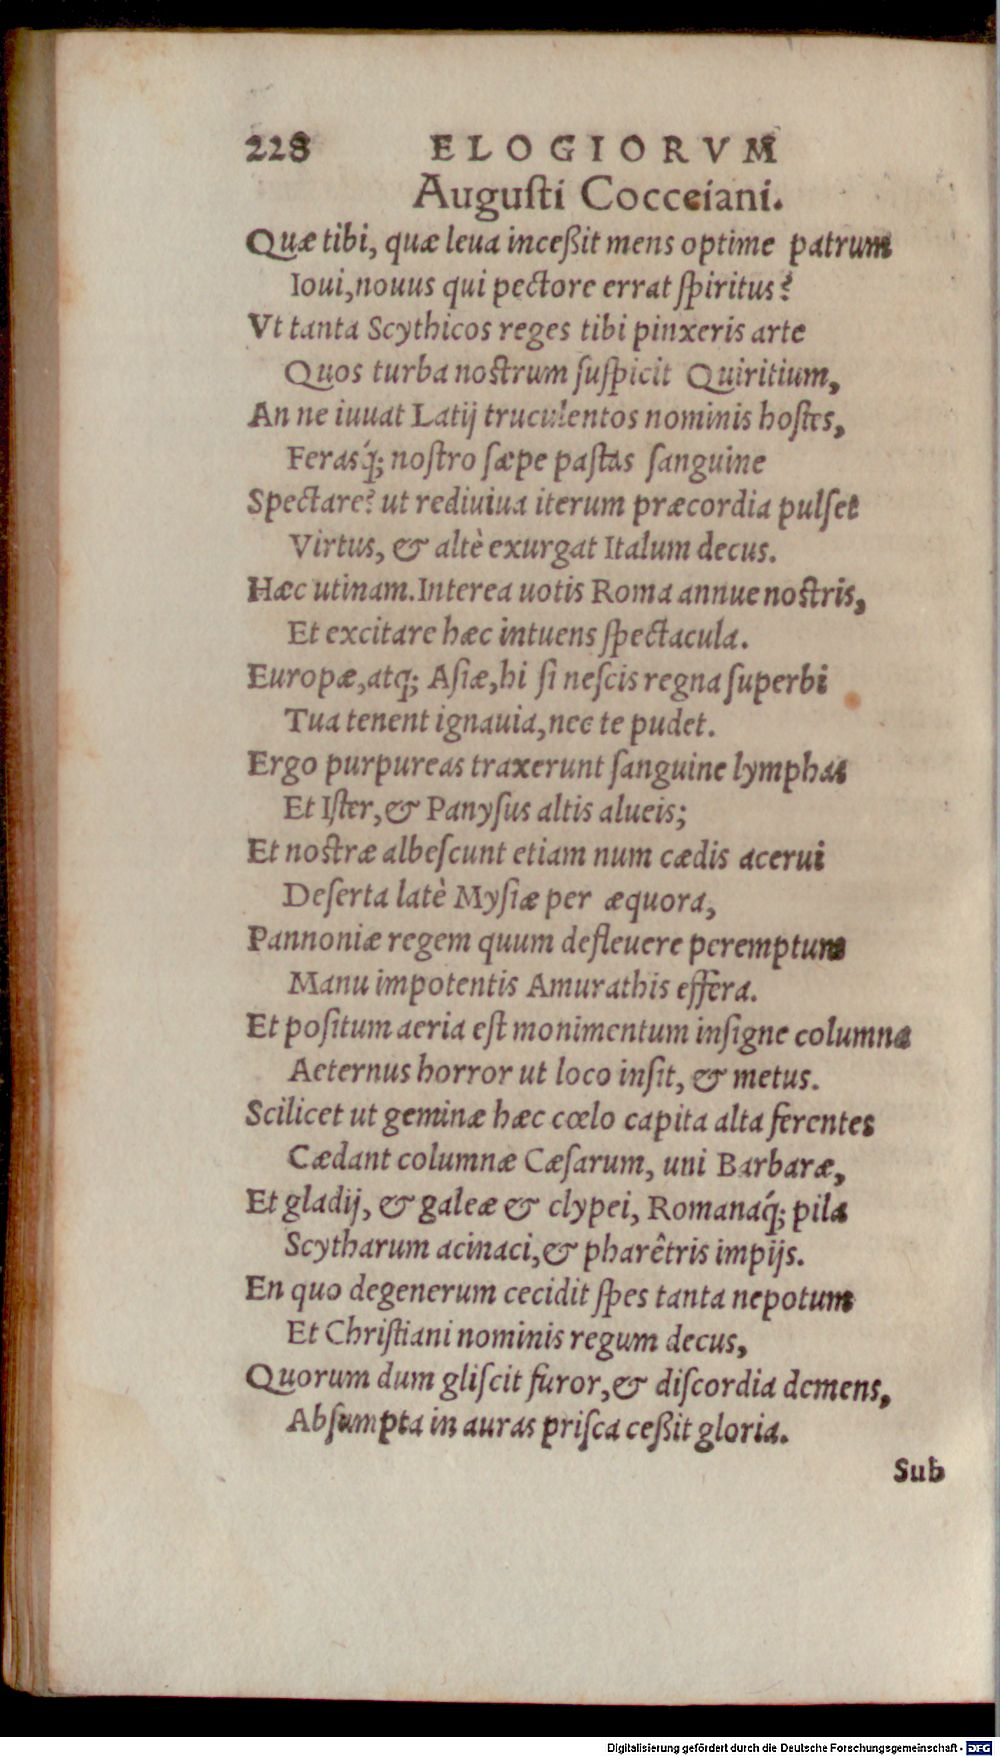 228 ELOGIORVM
Auguſti Cocceiani.
Quæ tibi, quæ leua inceßit mens optime patrum
Ioui, nouus qui pectore errat ſpiritus?
Vt tanta Scythicos reges tibi pinxeris arte
Quos turba nostrum ſuſpicit Quiritium,
An ne iuuat Latij truculentos nominis hoſtes,
Ferasq́; noſtro ſæpe paſtas ſanguine
Spectare? ut rediuiua iterum præcordia pulſet
Virtus, & altè exurgat Italum decus.
Hæc utinam. Interea uotis Roma annue nostris,
Et excitare hæc intuens ſpectacula.
Europæ, atq; Aſiæ, hi ſi neſcis regna ſuperbi
Tua tenent ignauia, nec te pudet.
Ergo purpureas traxerunt ſanguine lymphas
Et Iſter, & Panyſus altis alueis;
Et nostræ albeſcunt etiam num cædis acerui
Deſerta latè Myſiæ per æquora,
Pannoniæ regem quum defleuere peremptum
Manu impotentis Amurathis effera.
Et poſitum aeria eſt monimentum inſigne columna
Aeternus horror ut loco inſit, & metus.
Scilicet ut geminæ hæc cœlo capita alta ferentes
Cædant columnæ Cæſarum, uni Barbaræ,
Et gladij, & galeæ & clypei, Romanaq́; pila
Scytharum acinaci, & pharêtris impijs.
En quo degenerum cecidit ſpes tanta nepotum
Et Chriſtiani nominis regum decus,
Quorum dum gliſcit furor, & diſcordia demens,
Abſumpta in auras priſca ceßit gloria.
Sub
Digitalisierung gefördert durch die Deutsche Forschungsgemeinschaft - DFG